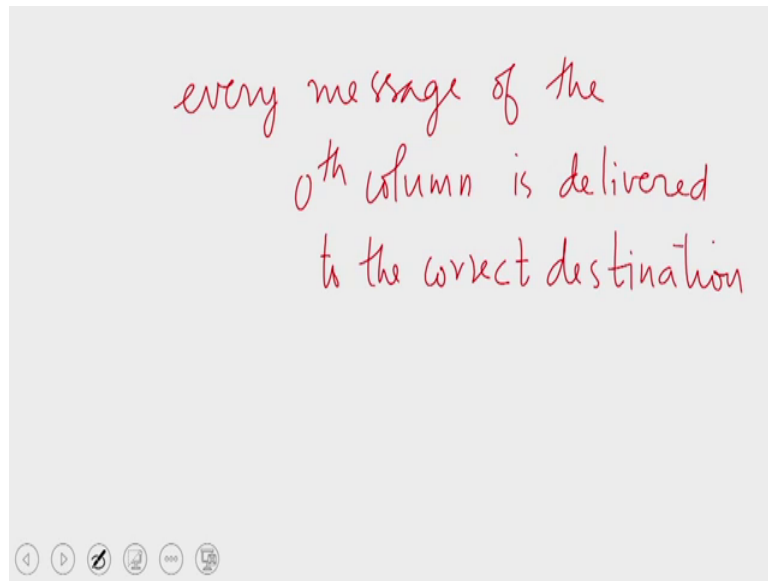 every message of the
0th column is delivered
to the correct destination